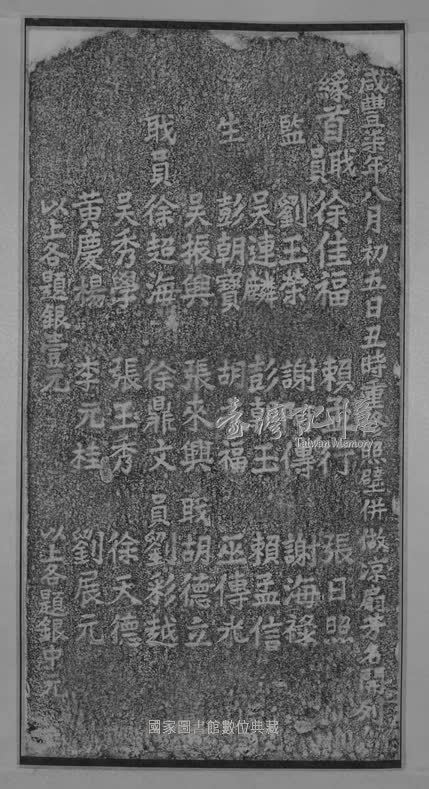 咸豐柒年八月初五日丑時重 照壁併做涼扇芳名開列
緣首職員徐佳福 賴 行 張日照
監 劉玉榮 謝 傳 謝海祿
吳連麟 彭 玉 賴孟信
生 彭朝寶 胡 福 巫傳
吳振興 張來興 職 胡德立
職員徐超海 徐鼎文 員劉彩越
吳秀學 張玉秀 徐天德
黃慶楊 李元桂 劉展元
以上各題銀壹元 以上各題銀中元
臺灣記憶
Taiwan Memory
國家圖書館數位典藏